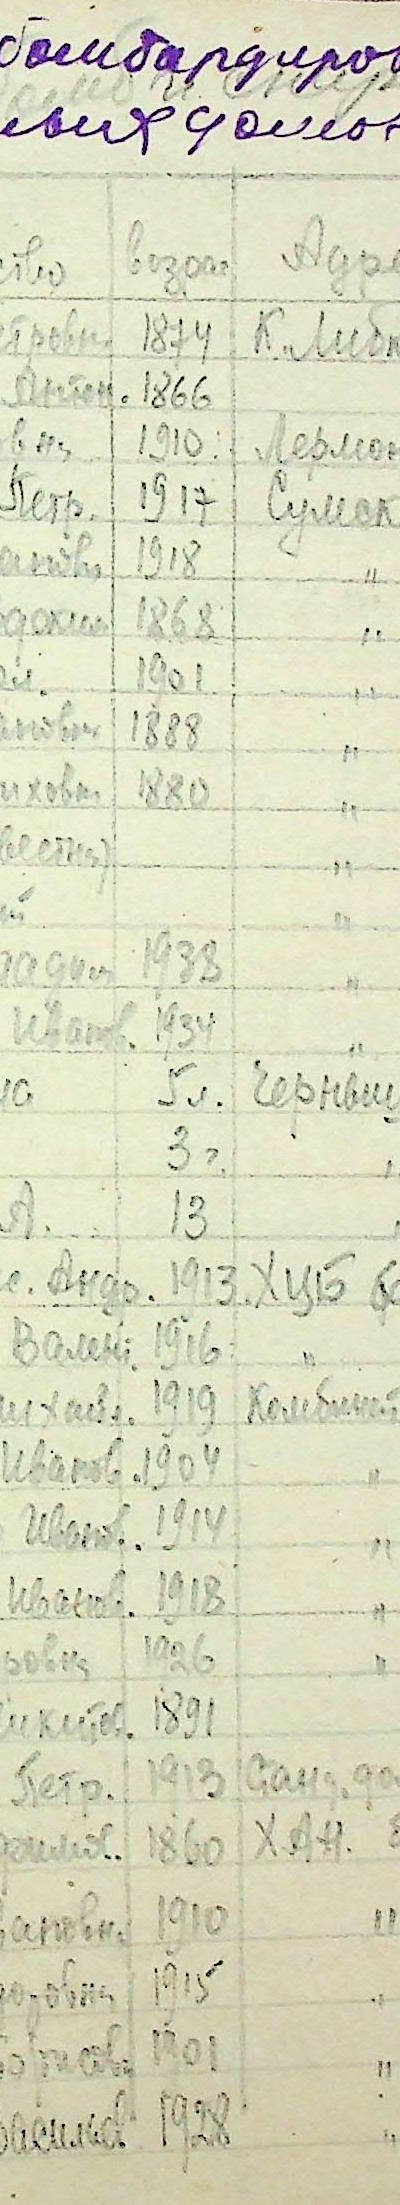 бомбардиров
ных домов
ство возр. Адре
етровн. 1874 К. Либк
Антон. 1866
овн, 1910. Лермон
Петр. 1917 Сумск
анов, 1918 "
1868 "
1901 "
ановн 1888 "
иховн 1880 "
вестны) "
"
1938 "
Иванов. 1934 "
на 5 л. Чернвш
3 г. "
А. 13 "
с. Андр. 1913. ХЦБ
Вален. 1916 "
михайл. 1919 Комбинат
Иванов. 1904 "
Иванов. 1914 "
Иванов. 1918 "
ровн, 1926 "
икитов. 1891
Петр. 1913 Станд. до
1860 ХАН.
ановн. 1910 "
доровн 1915 "
орисовн 1901 "
васильев 1928 "